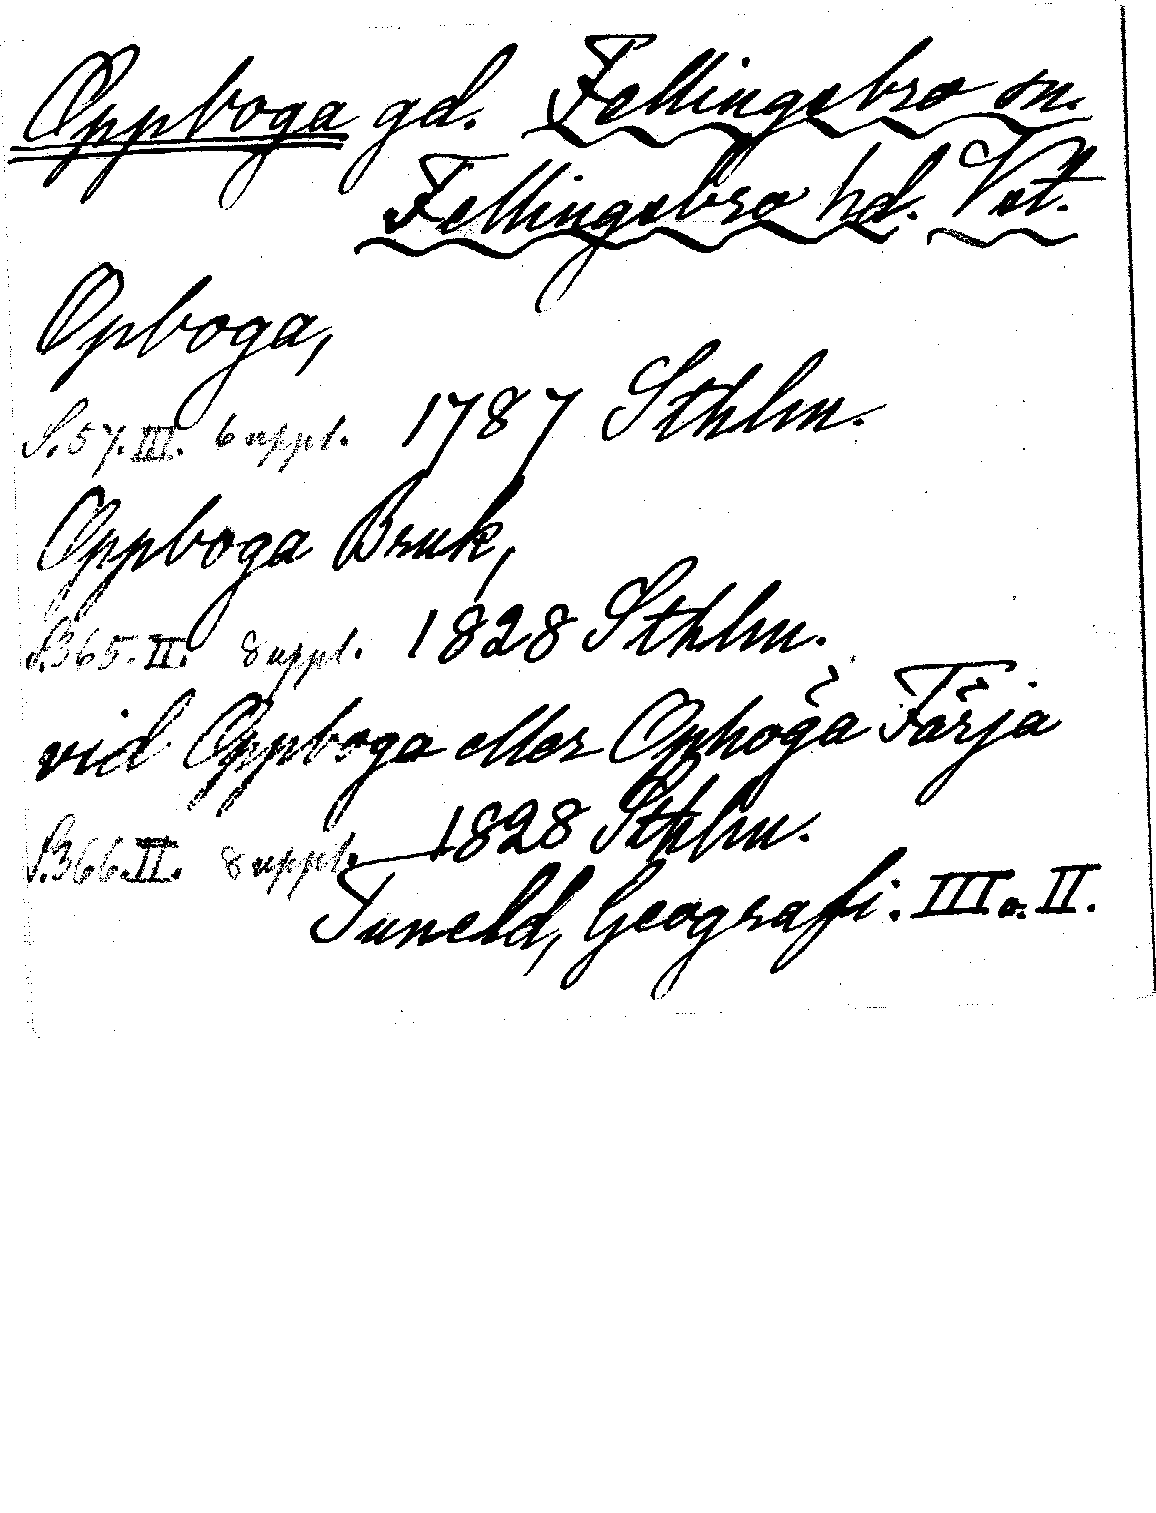 Oppboga gd. Fellingsbro sn.
Fellingsbro hd. Vstm.
Opboga,
S. 57. III. 6 uppl. 1787 Sthlm.
Oppboga Bruk,
S. 365. II. 8 uppl. 1828 Sthlm.
vid Oppboga eller Ophoga Färja
S. 366. II. 8 uppl. 1828 Sthlm.
Tuneld, Geografi. III o. II.